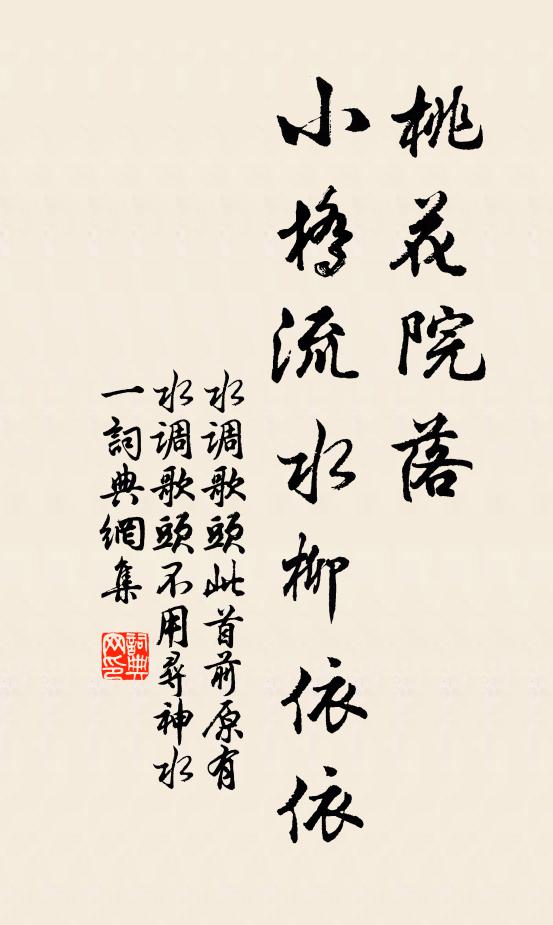 桃花院落
小橋流水柳依依
水调歌頭此首前原有
水调歌頭不用尋神水
一詞典網集
詞典网印